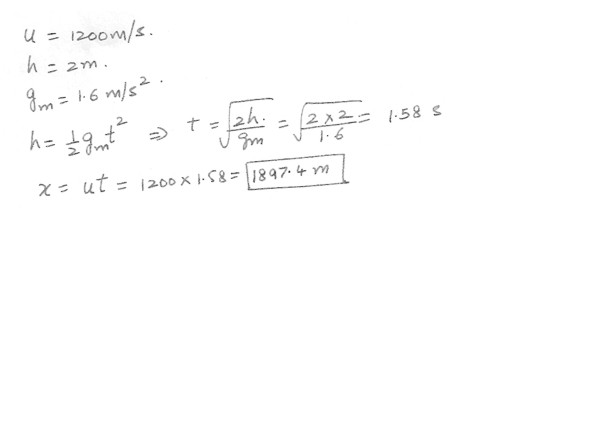 u = 1200m/s.
h = 2m.
gm = 1.6 m/s².
h = 1/2 gm t² ⇒ t = √(2h./gm) = √(2×2/1.6) = 1.58 s
x = ut = 1200 × 1.58 = 1897.4 m